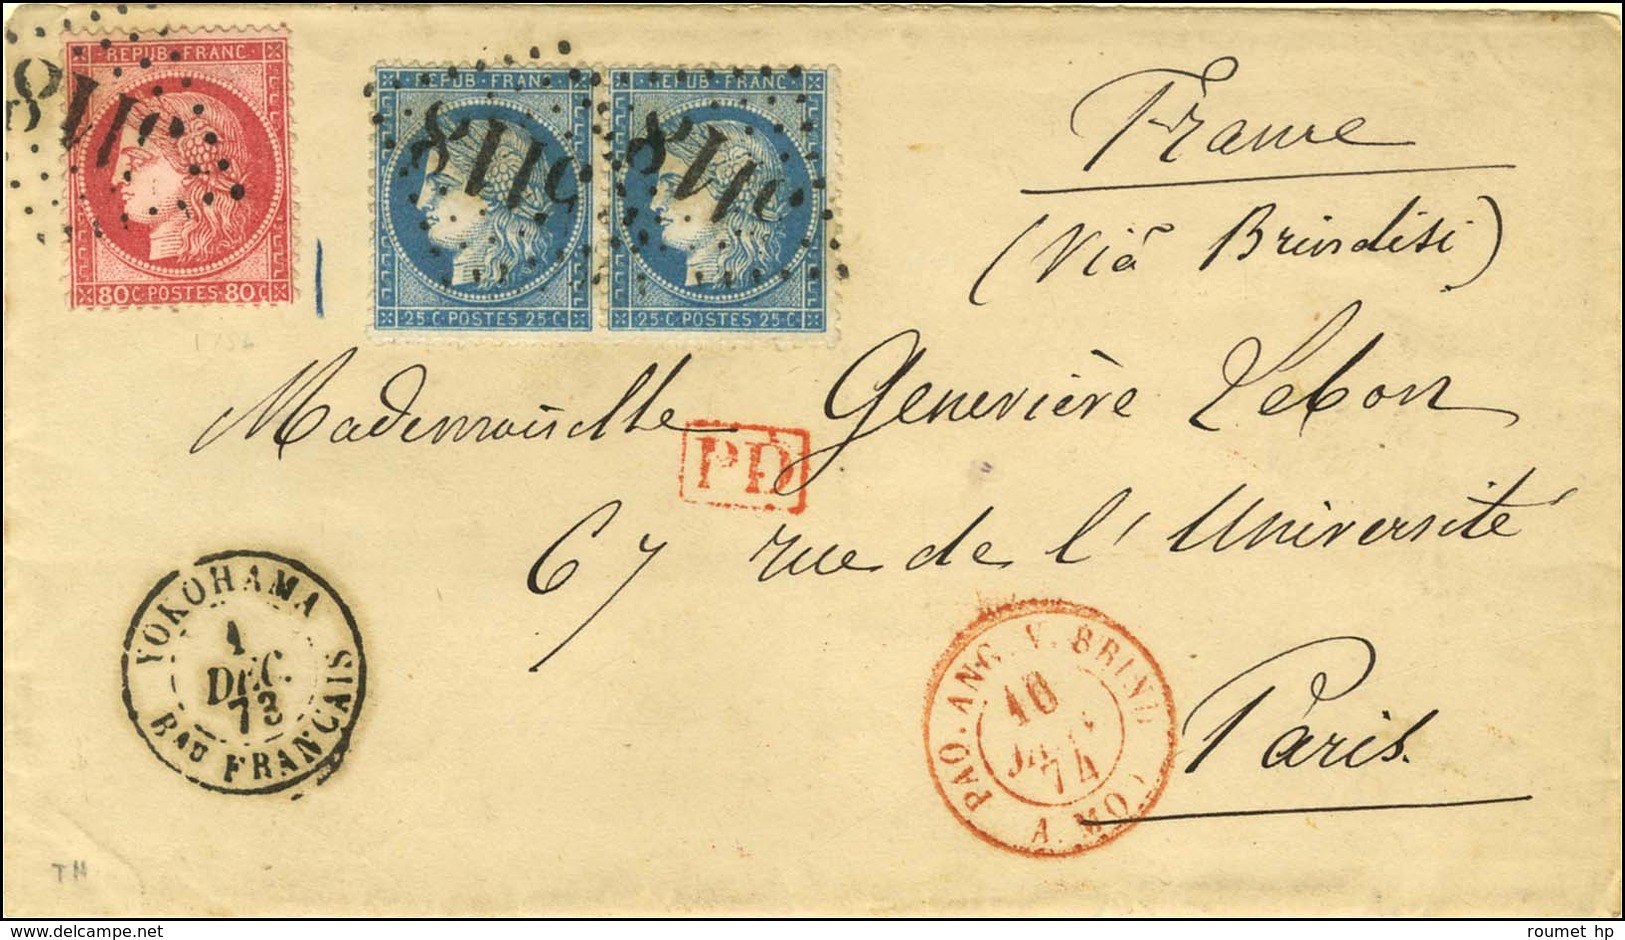 REPUB·FRANC
80C·POSTES·80C
5118
REPUB·FRANC
25·C·POSTES 25·C
5118
REPUB·FRANC
25·C·POSTES 25·C
5118
France
(Viâ Brindisi)
Mademoiselle Geneviève Lebon
PD
67 rue de l'Université
Paris.
YOKOHAMA
1
DEC.
73
Bau FRANCAIS
PAQ. ANG. V. BRIND.
10
JANV.
74
A. MOD
TH
delcampe.net
roumet hp